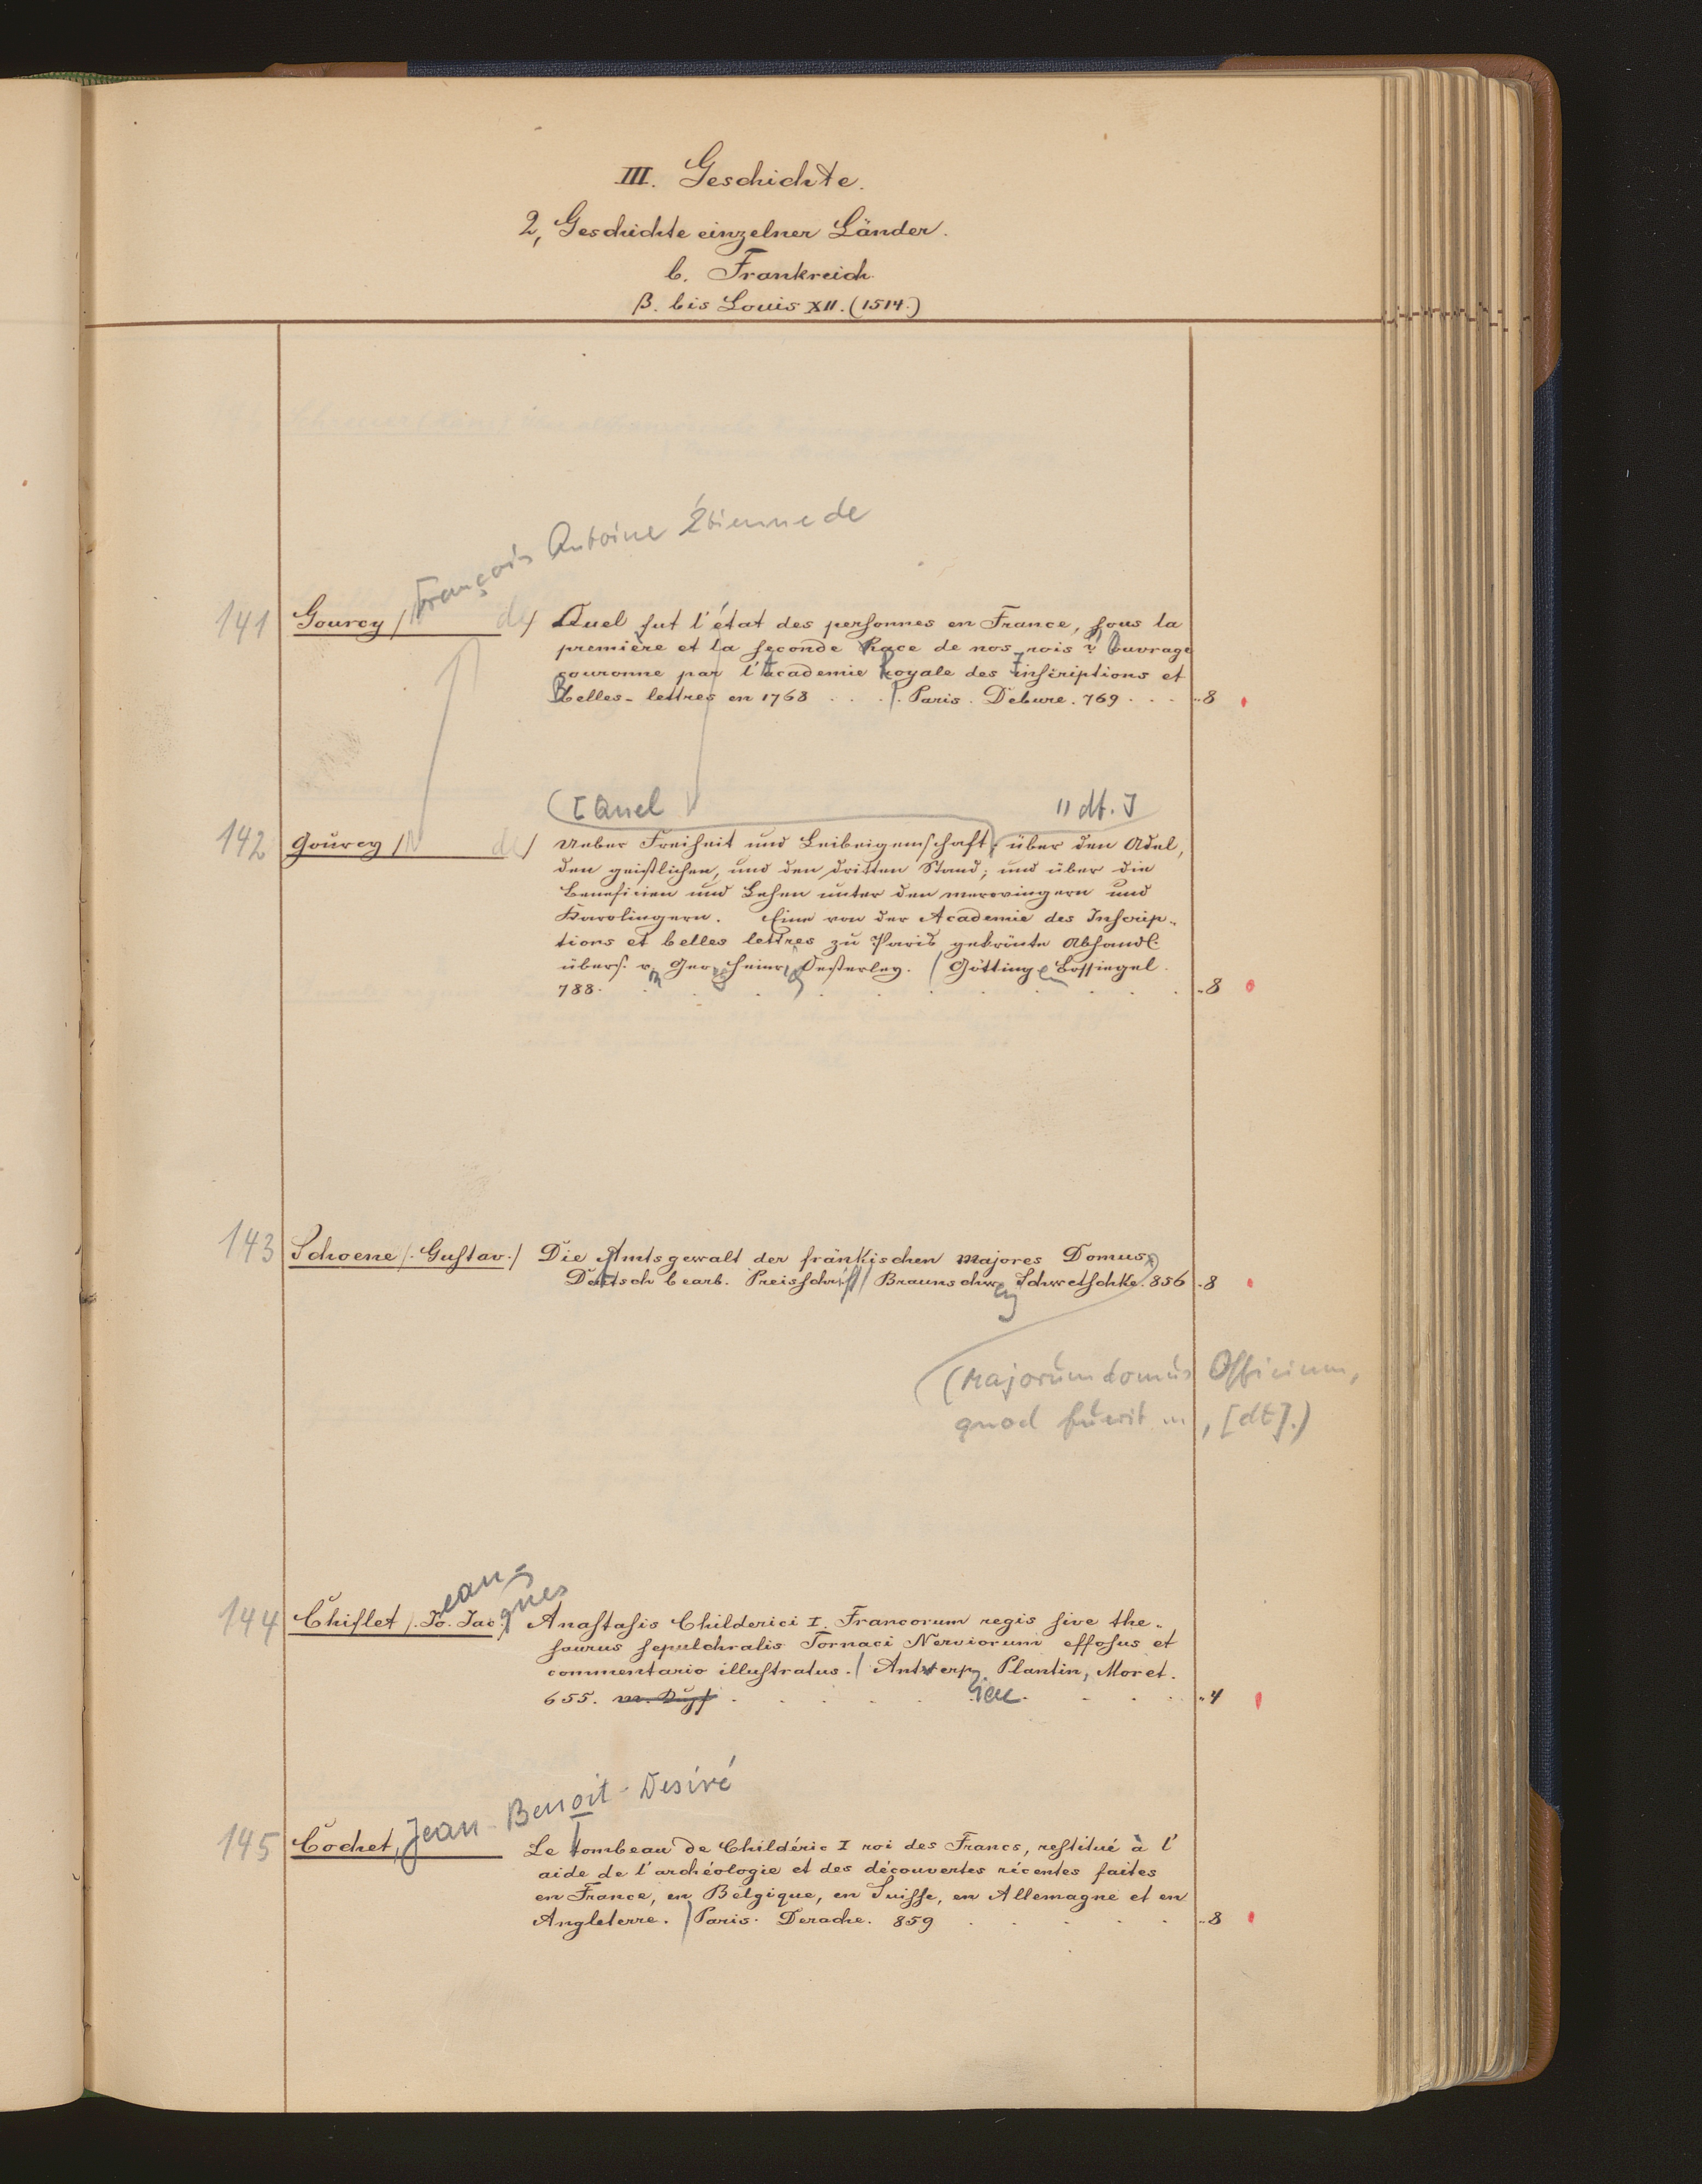 III. Geschichte.
2, Geschichte einzelner Länder.
b. Frankreich.
β. bis Louis XII. (1514.)
François Antoine Étienne de
141 Gourcy / de / Quel fut l'état des personnes en France, sous la
première et la seconde Race de nos rois? Ouvrage
couronne par l'Academie Royale des Inscriptions et
Belles-lettres en 1768 . . . /. Paris. Debure. 769 . . . „8
([Quel " dt.]
142 Gourcy / de / Ueber Freiheit und Leibeigenschaft, über den Adel,
den geistlichen, und den dritten Stand; und über die
Beneficien und Lehen unter den Merovingern und
Karolingern. Eine von der Academie des Inscrip„
tions et belles lettres zu Paris gekrönte Abhandl.
übers. v. Geo. Heinr. Oesterley. / Götting en Bossiegel.
788. „8
143 Schoene /. Gustav. / Die Amtsgewalt der fränkischen Majores Domus.
Deutsch bearb. Preisschrift / Braunschweig Schwetschke. 856 „8
(Majorum domus Officium,
quod fuerit ..., [dt].)
ean-
ques
144 Chiflet /. Jo. Jac. / Anastasis Childerici I. Francorum regis sive the„
saurus sepulchralis Tornaci Nerviorum effosus et
commentario illustratus. / Antverp. Plantin, Moret.
655. m. Kupf iae „4
Jean-Benoit-Desiré
145 Cochet, Le tombeau de Childéric I roi des Francs, restitué à l'
aide de l'archéologie et des découvertes récentes faites
en France, en Belgique, en Suisse, en Allemagne et en
Angleterre. / Paris. Derache. 859 „8